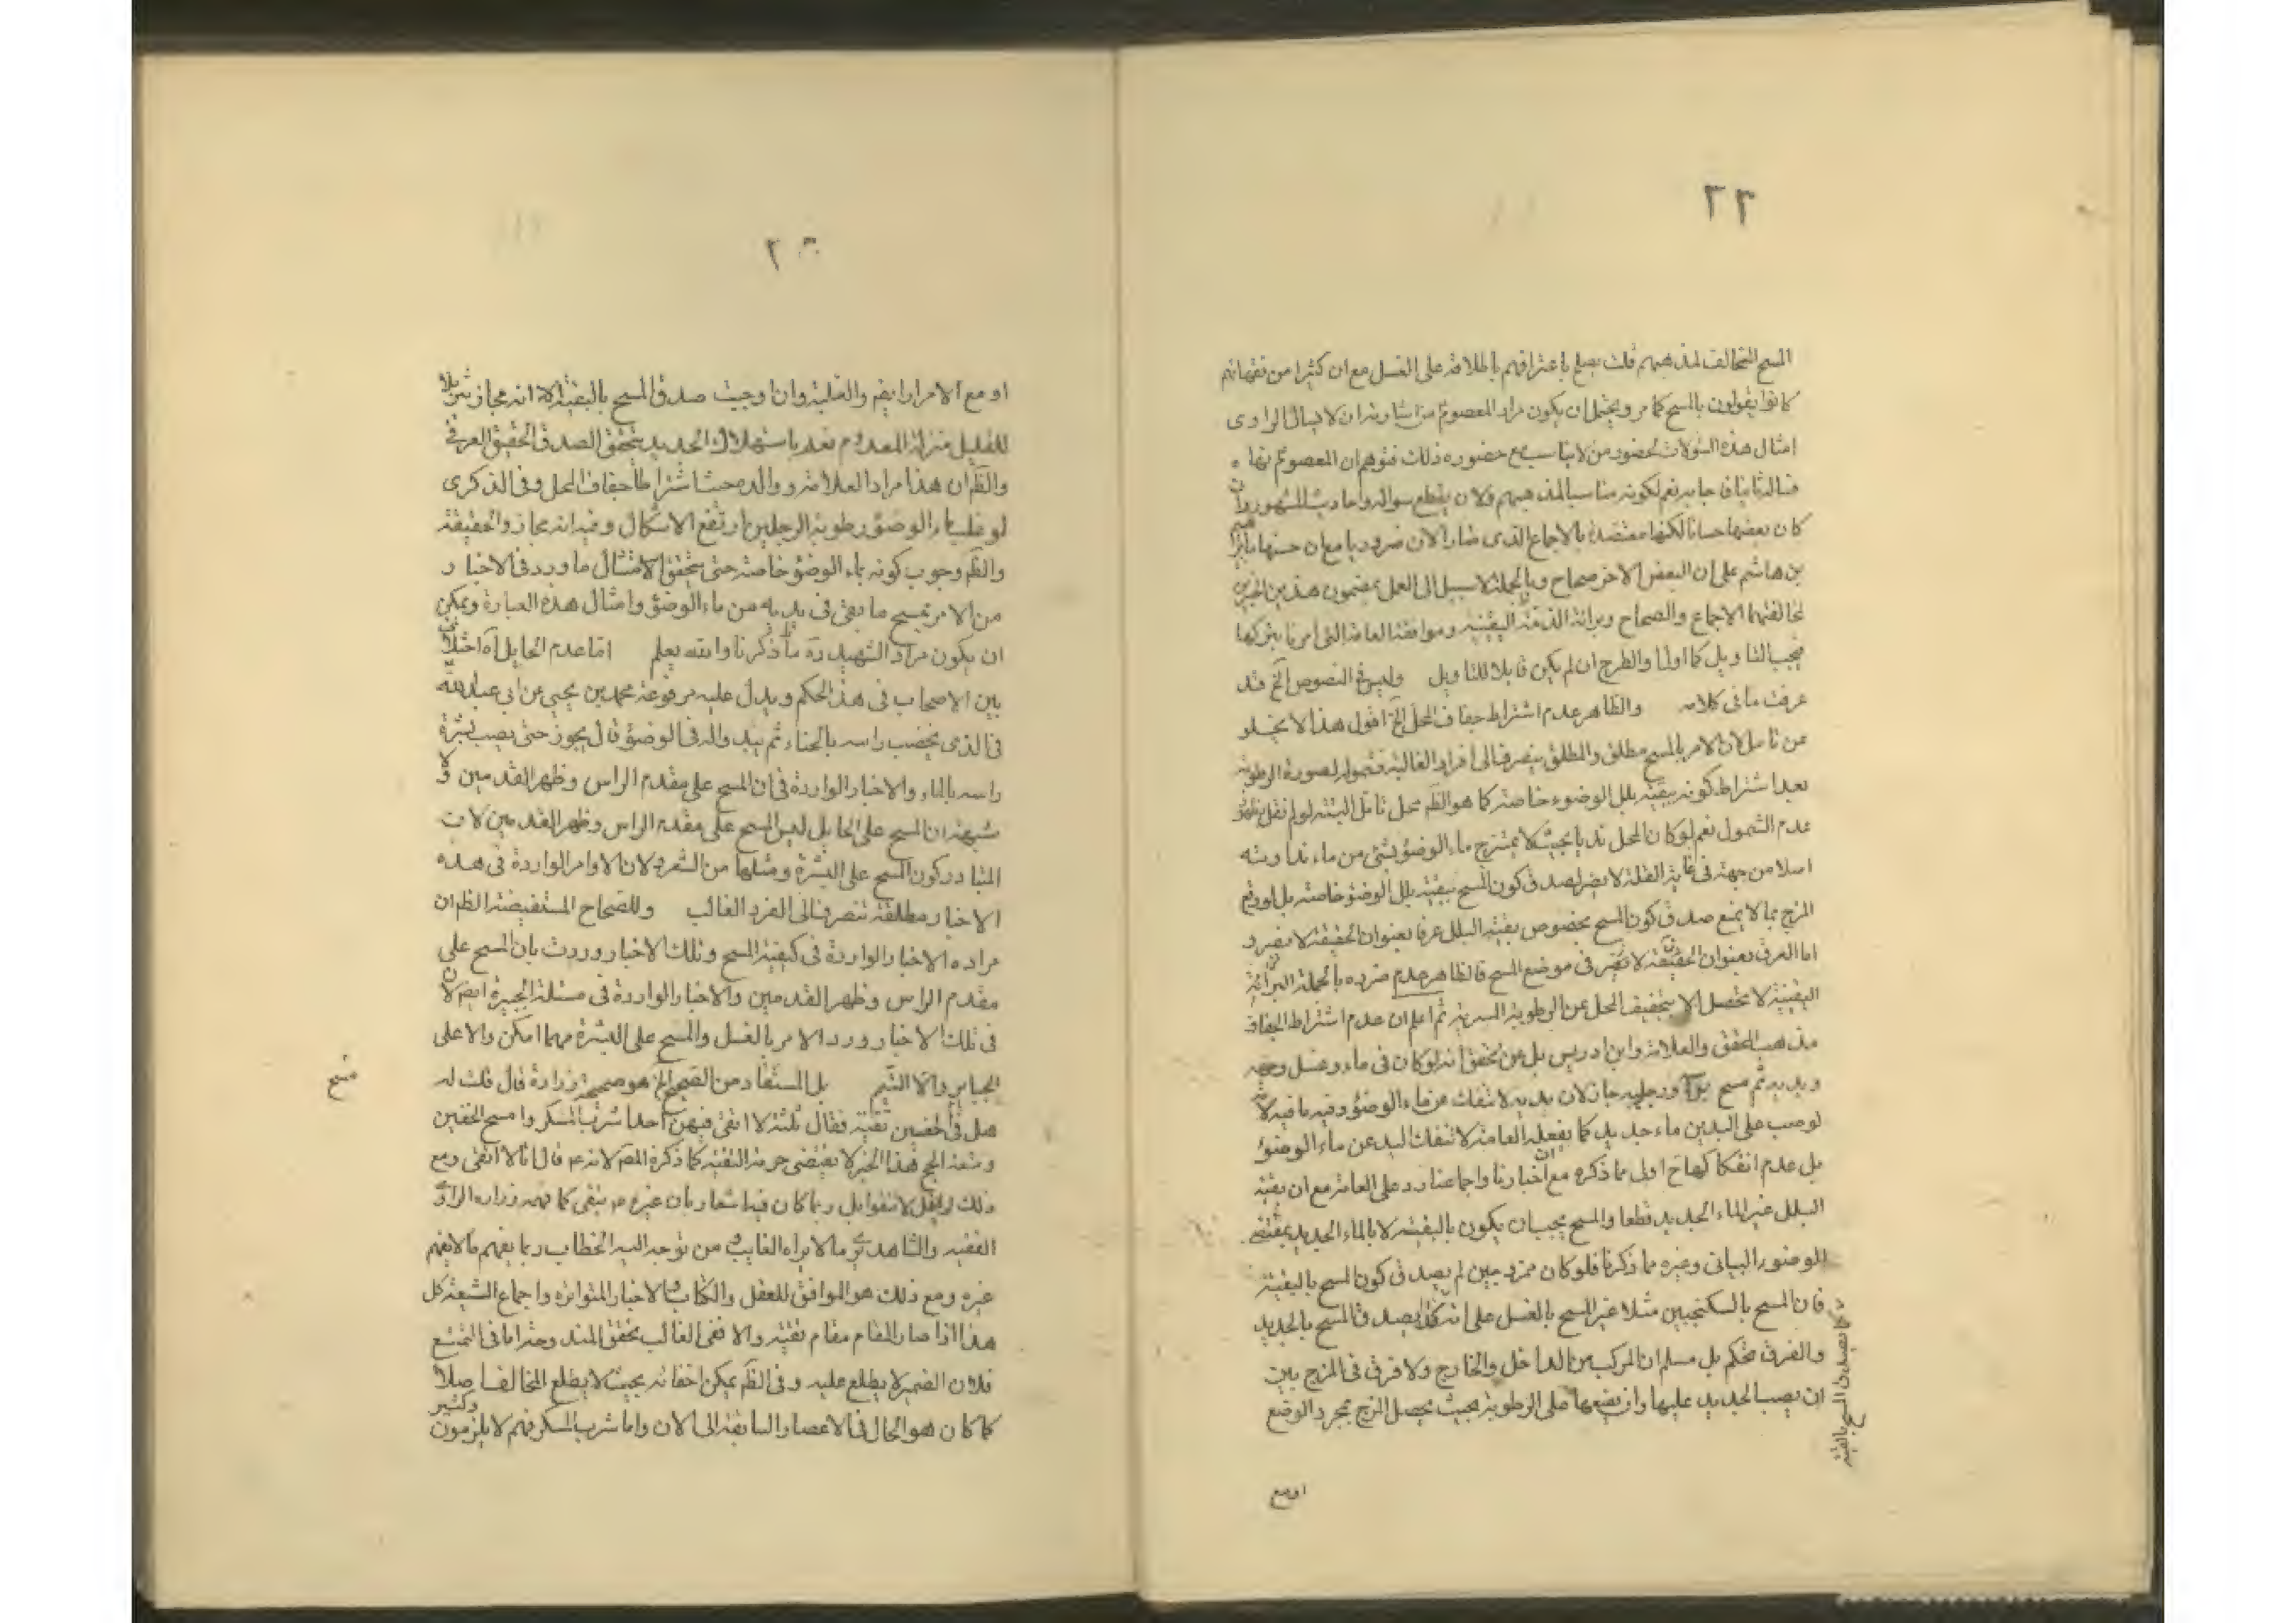 ٢٢
المسح المخالف لمذهبهم قلت يصلح باعترافهم باطلاقه على الغسل مع ان كثيرا من فقهائهم
كانوا يقولون بالمسح كما مر ويحتمل ان يكون مراد المعصوم من اشارته ان لا يسال الراوى
امثال هذه السؤالات لحضور من لا يناسب مع حضوره ذلك فتوهم ان المعصوم نها
فساله ثانيا فاجابه نعم لكونه مناسبا لمذهبهم ولان يقطع سواله واما حديث المشهور وان
كان بعضها حسانا لكنها معتضدة بالاجماع الذى صار الان ضروريا مع ان حسنها بابراهيم
بن هاشم على ان البعض الاخر صحاح وبالجملة لا سبيل الى العمل بمضمون هذين الخبرين
لمخالفتهما الاجماع والصحاح وبرائة الذمة اليقينية وموافقة العامة التى امرنا بتركها
فيجب التاويل كما اولنا والطرح ان لم يكن قابلا للتاويل وليس فى النصوص الخ قد
عرفت ما فى كلامه والظاهر عدم اشتراط جفاف المحل الخ اقول هذا لا يخلو
عن تامل لان الامر بالمسح مطلق والمطلق ينصرف الى افراد الغالبة فشموله لصورة الرطوبة
بعد اشتراط كونه ببقية بلل الوضوء خاصة كما هو الظم محل تامل البتة لو لم نقل بظهور
عدم الشمول نعم لو كان المحل نديا بحيث لا يمتزج ماء الوضوء بشئ من ماء نداوته
اصلا من جهة فى غاية القلة لا يضر لصدق كون المسح ببقية بلل الوضوء خاصة بل لو وقع
المزج بما لا يمنع صدق كون المسح بخصوص بقية البلل عرفا بعنوان الحقيقة لا يضر و
اما العرفى بعنوان الحقيقة لا تضر فى موضع المسح فالظاهر عدم ضرره بالجملة البرائة
اليقينية لا تحصل الا بتجفيف المحل عن الرطوبة المسرية ثم اعلم ان عدم اشتراط الجفاف
مذهب المحقق والعلامة وابن ادريس بل عن المحقق انه لو كان فى ماء وغسل وجهه
ويديه ثم مسح براسه ورجليه جاز لان يديه لا تنفك من ماء الوضوء وفيه ما فيه لانه
لو صب على اليدين ماء جديد كما يفعله العامة لا تنفك اليد عن ماء الوضوء
بل عدم انفكاكها ح اولى مما ذكره مع ان اخبارنا واجماعنا رد على العامة مع ان بقية
البلل غير الماء الجديد قطعا والمسح يجب ان يكون بالبقية لا بالماء الجديد بمقتضى
الوضوء البيانى وغيره مما ذكرنا فلو كان ممزوجين لم يصدق كون المسح بالبقية
فان المسح بالسكنجبين مثلا غير المسح بالعسل على انه كما يصدق المسح بالجديد
والفرق تحكم بل مسلم ان المركب من الداخل والخارج ولا فرق فى المزج بين
ان يصب الجديد عليها وان يضعها على الرطوبة بحيث يحصل المزج بمجرد الوضع
يصدق المسح بالبقية
او مع
او مع الامرار ايضم والغلبة وان اوجبت صدق المسح بالبقية الا انه مجاز تنزيلا
للقليل منزلة المعدوم نعم باستهلاك الجديد يتحقق الصدق الحقيقى العرفى
والظم ان هذا مراد العلامة ووالده حيث اشترطا جفاف المحل وفى الذكرى
لو غلب ماء الوضوء رطوبة الرجلين ارتفع الاشكال وفيه انه مجاز والحقيقة
والظم وجوب كونه بماء الوضوء خاصة حتى يتحقق الامتثال ما ورد فى الاخبار
من الامر بمسح ما بقى فى يديه من ماء الوضوء وامثال هذه العبارة ويمكن
ان يكون مراد الشهيد ره ما ذكرنا والله يعلم اما عدم الحايل اه اختلاف
بين الاصحاب فى هذا الحكم ويدل عليه مرفوعة محمد بن يحيى عن ابى عبد الله
فى الذى يخضب راسه بالحناء ثم يبدو له فى الوضوء قال لا يجوز حتى يصيب بشرة
راسه بالماء والاخبار الواردة فى ان المسح على مقدم الراس وظهر القدمين ولا
شبهة ان المسح على الحايل ليس المسح على مقدم الراس وظهر القدمين لان
المتبادر كون المسح على البشرة ومثلها من الشعر لان الاوامر الواردة فى هذه
الاخبار مطلقة تنصرف الى الفرد الغالب وللصحاح المستفيضة الظم ان
مراده الاخبار الواردة فى كيفية المسح وتلك الاخبار وردت بان المسح على
مقدم الراس وظهر القدمين والاخبار الواردة فى مسئلة الجبيرة ايضم لان
فى تلك الاخبار ورد الامر بالغسل والمسح على البشرة مهما امكن والا على
الجباير والا التيمم بل المستفاد من الصحيح الخ هو صحيحة زرارة قال قلت له
هل فى الخفين تقية فقال ثلثة لا اتقى فيهن احدا شرب المسكر والمسح الخفين
ومتعة الحج فهذا الخبر لا يقتضى حرمة التقية كما ذكره المصم لانه ع قال انا لا اتقى ومع
ذلك لم يقل لا تتقوا بل ربما كان فيه اشعار بان غيره ع يتقى كما فهمه زراره الراوى
الفقيه والشاهد يرى ما لا يراه الغايب من توجه اليه الخطاب ربما يفهم ما لا يفهم
غيره ومع ذلك هو الموافق للعقل والكتاب والاخبار المتواترة واجماع الشيعة كل
هذا اذا صار المقام مقام تقية والا ففى الغالب تحقق المندوحة اما فى التمتع
فلان الضمير لا يطلع عليه وفى الظم يمكن اخفائه بحيث لا يطلع المخالف اصلا
كما كان هو الحال فى الاعصار السابقة الى الان واما شرب المسكر فهم لا يلزمون
وكثير
مسح